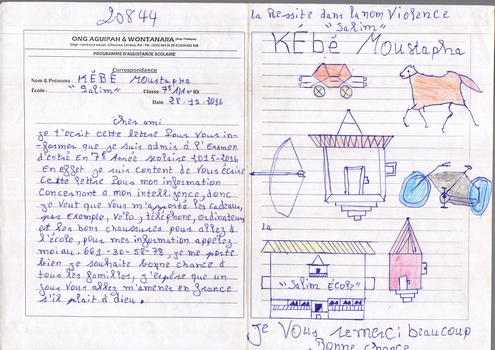 20844
ONG AGUIPAH & WONTANARA
PROGRAMME D'ASSISTANCE SCOLAIRE
Correspondance
Nom & Prénoms : KÉBÉ Moustapha
École : "Salim" Classe 7è
Date
cher ami
je t'ecrit cette lettre Pour vous in-
former que je suis admis à l'Examen
d'entré en 7è année scolaire 2015-2016
En effet je suis content de vous écrire
cette lettre Pour mon information
concernant à mon intelligence, donc
je veut que vous m'apporté les cadeaux,
par exemple, vélo, téléphone, ordinateur
et les bons chaussures pour allez à
l'école, pour mes information appelez
moi au. 661-36-58-78, je me porte
bien je souhaite bonne chance à
tous les familles, j'espère que un
jour vous allez m'amener en france
s'il plait à dieu.
La Reussite dans la non Violence
"Salim"
KÉBÉ Moustapha
La
"Salim École"
je vous remerci beaucoup
Bonne chance